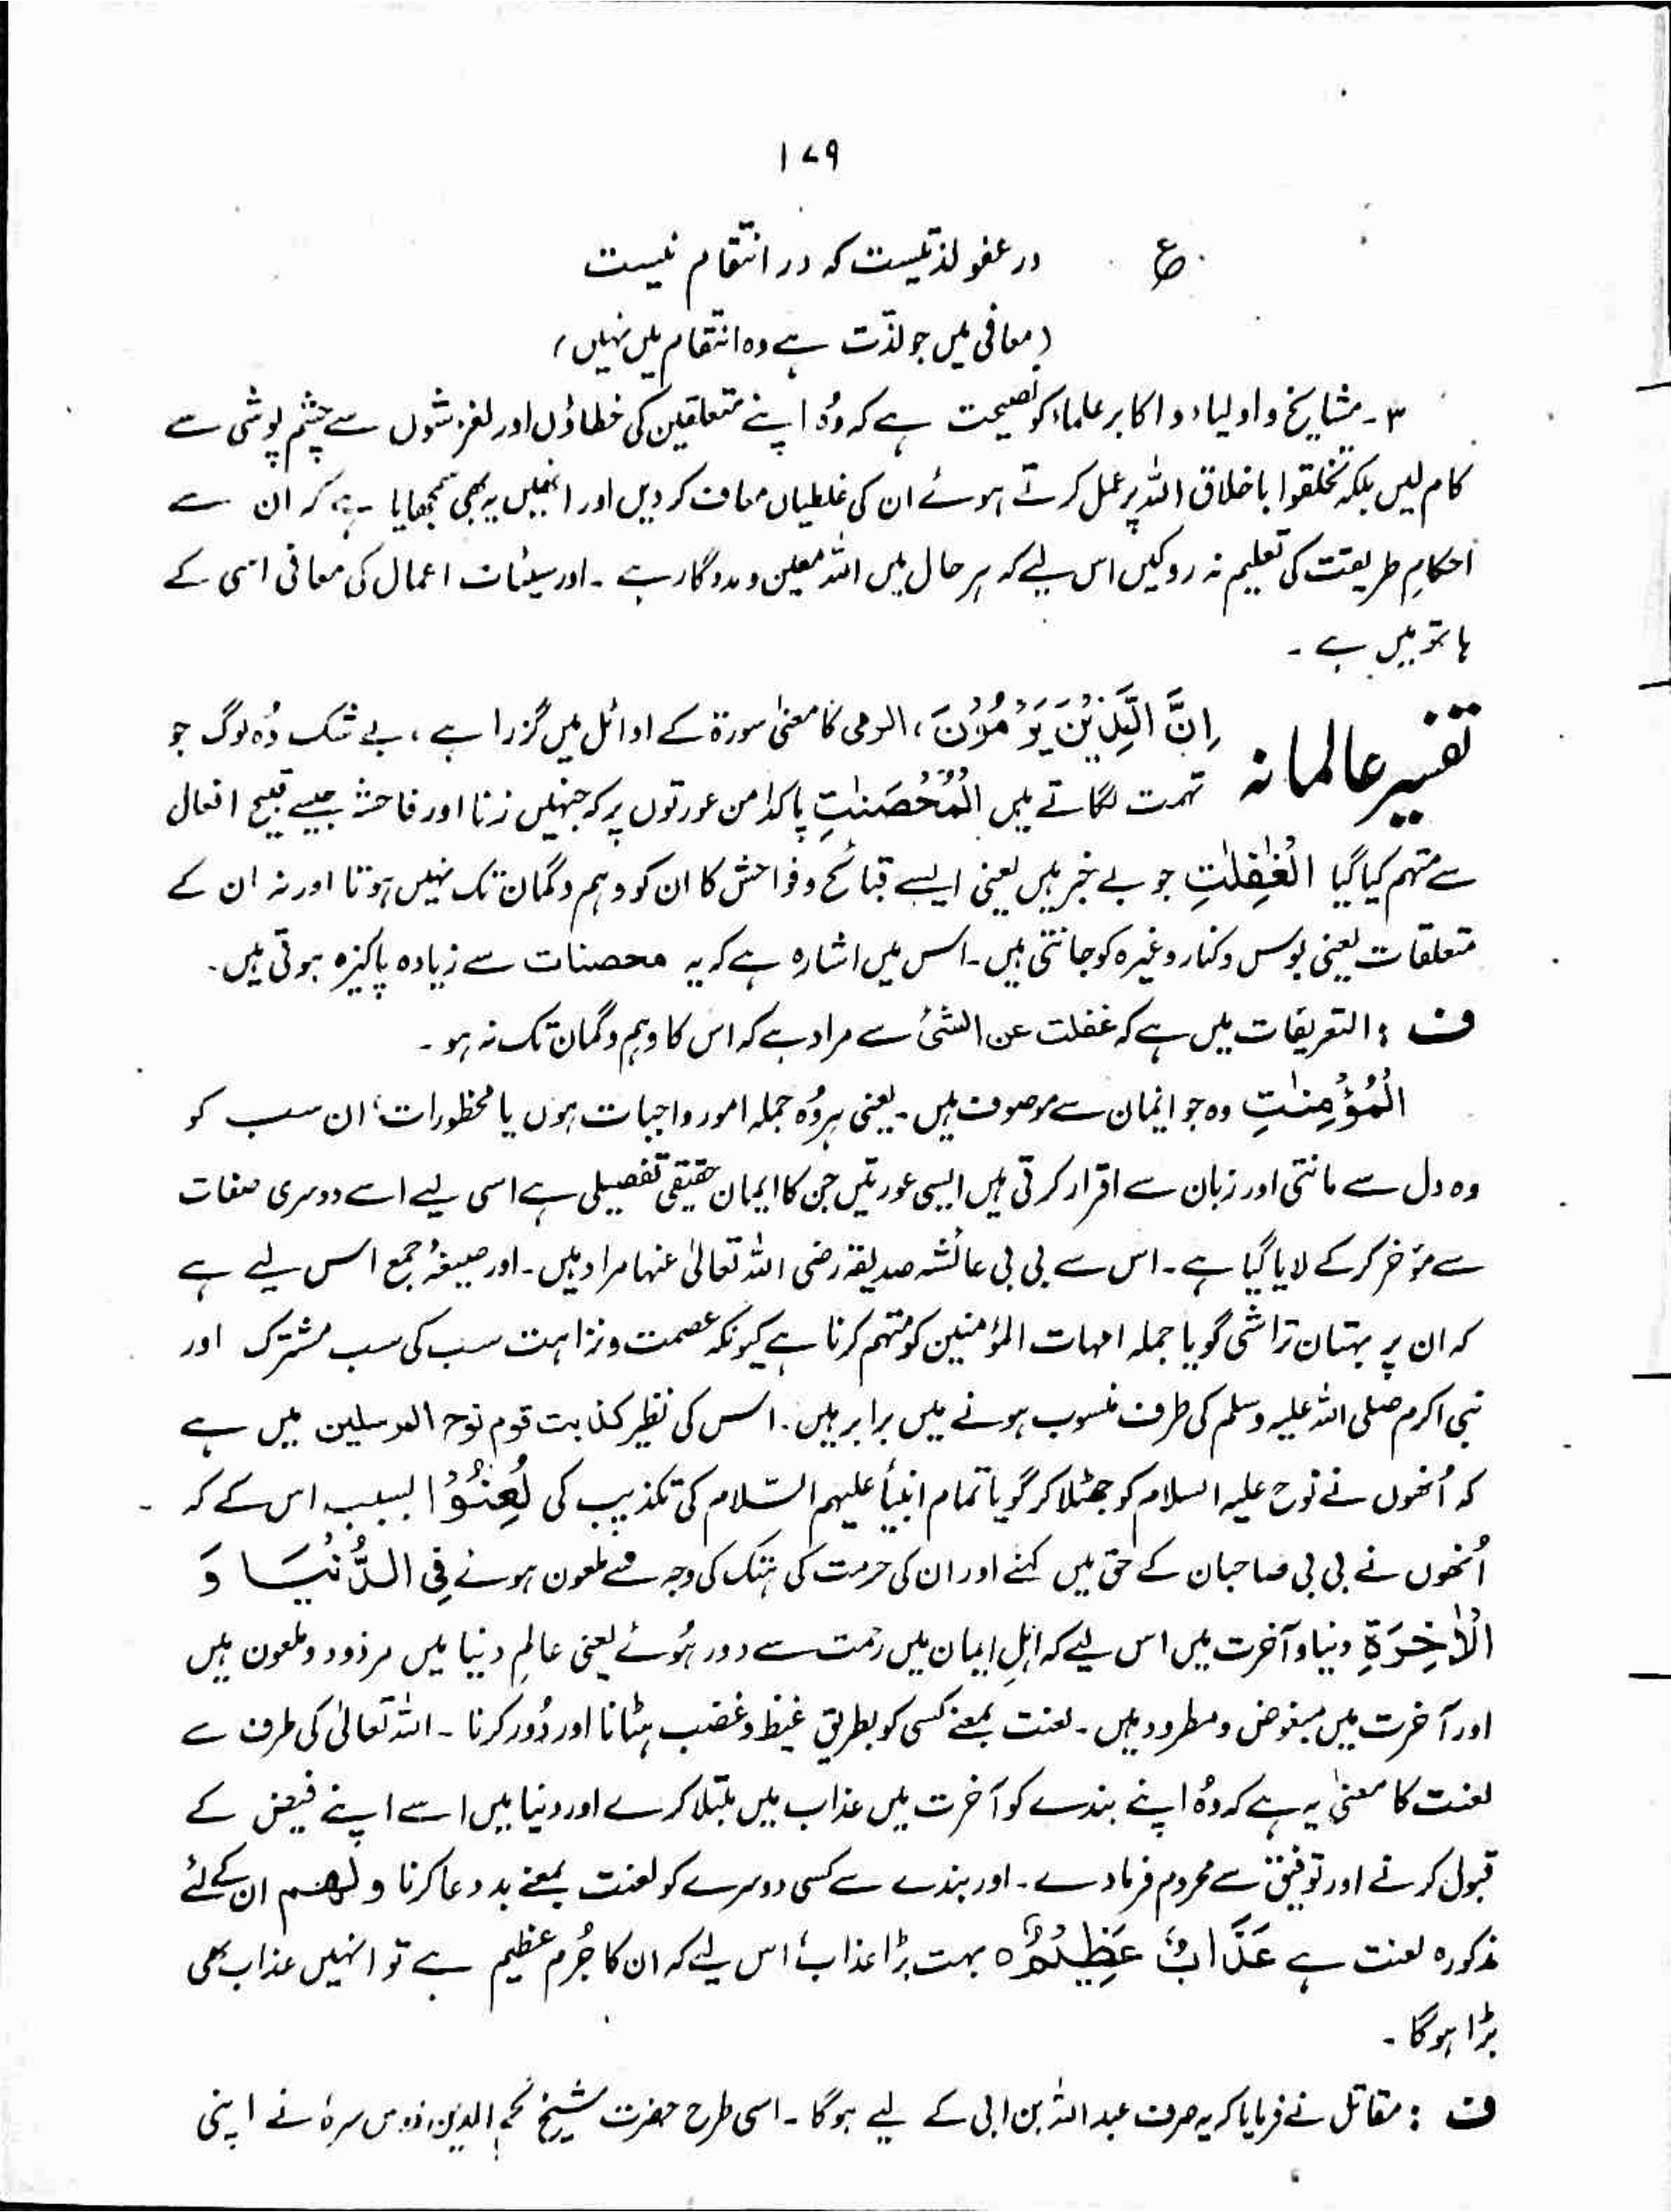 ۱۷۹
ع در عفو لذتیست کہ در انتقام نیست
(معافی میں جو لذّت ہے وہ انتقام میں نہیں)
۳۔ مشایخ و اولیاء و اکابر علماء کو نصیحت ہے کہ وُہ اپنے متعلقین کی خطاؤں اور لغزشوں سے چشم پوشی سے
کام لیں بلکہ تخلقوا باخلاق اللہ پر عمل کرتے ہوئے ان کی غلطیاں معاف کر دیں اور انھیں یہ بھی سمجھایا ہے کہ ان سے
احکامِ طریقت کی تعلیم نہ روکیں اس لیے کہ ہر حال میں اللہ معین و مددگار ہے ۔ اور سیئات اعمال کی معافی اسی کے
ہاتھ میں ہے ۔
تفسیر عالمانہ اِنَّ الَّذِیْنَ یَرْمُوْنَ، الرمی کا معنیٰ سورۃ کے اوائل میں گزرا ہے ، بے شک وُہ لوگ جو
تہمت لگاتے ہیں الْمُحْصَنٰتِ پاکدامن عورتوں پر کہ جنہیں زنا اور فاحشہ جیسے قبیح افعال
سے متہم کیا گیا الْغٰفِلٰتِ جو بے خبر ہیں یعنی ایسے قبائح و فواحش کا ان کو وہم و گمان تک نہیں ہوتا اور نہ ان کے
متعلقات یعنی بوس و کنار وغیرہ کو جانتی ہیں ۔ اس میں اشارہ ہے کہ یہ محصنات سے زیادہ پاکیزہ ہوتی ہیں ۔
ف : التعریفات میں ہے کہ غفلت عن الشئ سے مراد ہے کہ اس کا وہم و گمان تک نہ ہو ۔
الْمُؤْمِنٰتِ وہ جو ایمان سے موصوف ہیں ۔ یعنی ہر وُہ جملہ امور واجبات ہوں یا محظورات، ان سب کو
وہ دل سے مانتی اور زبان سے اقرار کرتی ہیں ایسی عورتیں جن کا ایمان حقیقی تفصیلی ہے اسی لیے اسے دوسری صفات
سے مؤخر کر کے لایا گیا ہے ۔ اس سے بی بی عائشہ صدیقہ رضی اللہ تعالیٰ عنہا مراد ہیں ۔ اور صیغۂ جمع اس لیے ہے
کہ ان پر بہتان تراشی گویا جملہ امہات المؤمنین کو متہم کرنا ہے کیونکہ عصمت و نزاہت سب کی سب مشترک اور
نبی اکرم صلی اللہ علیہ وسلم کی طرف منسوب ہونے میں برابر ہیں ۔ اس کی نظیر کذبت قوم نوح المرسلین میں ہے
کہ اُنھوں نے نوح علیہ السلام کو جھٹلا کر گویا تمام انبیأ علیہم السّلام کی تکذیب کی لُعِنُوْا بسبب اس کے کہ
اُنھوں نے بی بی صاحبان کے حق میں کہنے اور ان کی حرمت کی ہتک کی وجہ سے ملعون ہونے فِی الدُّنْیَا وَ
الْاٰخِرَۃِ دنیا و آخرت میں اس لیے کہ اہلِ ایمان میں رحمت سے دور ہُوئے یعنی عالمِ دنیا میں مردود و ملعون ہیں
اور آخرت میں مبغوض و مطرود ہیں ۔ لعنت بمعنے کسی کو بطریق غیظ و غضب ہٹانا اور دُور کرنا ۔ اللہ تعالیٰ کی طرف سے
لعنت کا معنیٰ یہ ہے کہ وُہ اپنے بندے کو آخرت میں عذاب میں مبتلا کرے اور دنیا میں اسے اپنے فیض کے
قبول کرنے اور توفیق سے محروم فرما دے ۔ اور بندے سے کسی دوسرے کو لعنت بمعنے بددعا کرنا و لھم ان کے لئے
مذکورہ لعنت ہے عَذَابٌ عَظِیْمٌ ہ بہت بڑا عذاب، اس لیے کہ ان کا جُرم عظیم ہے تو انہیں عذاب بھی
بڑا ہوگا ۔
ف : مقاتل نے فرمایا کہ یہ صرف عبد اللہ بن ابی کے لیے ہوگا ۔ اسی طرح حضرت شیخ نجم الدین قدس سرہٗ نے اپنی